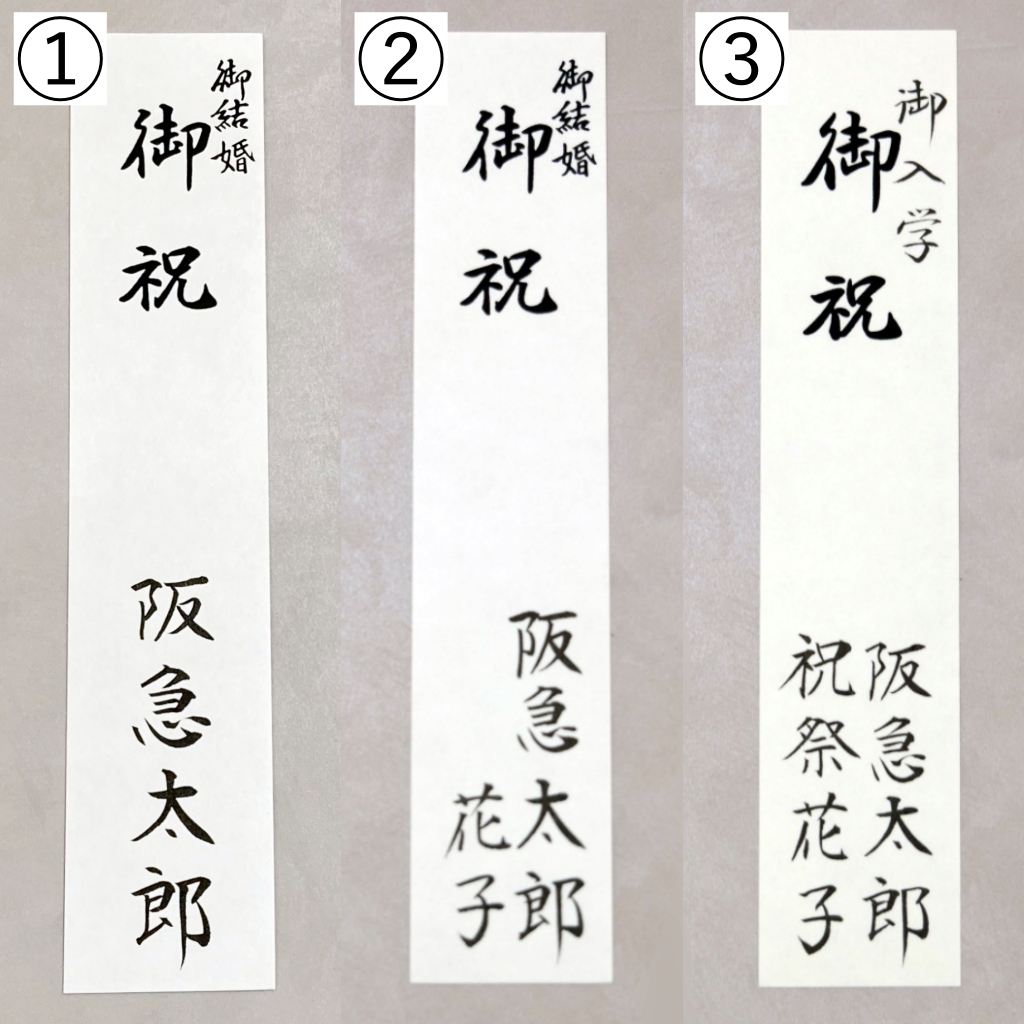 ①
御結婚
御祝
阪急太郎
②
御結婚
御祝
阪急太郎
花子
③
御入学
御祝
阪急太郎
祝祭花子